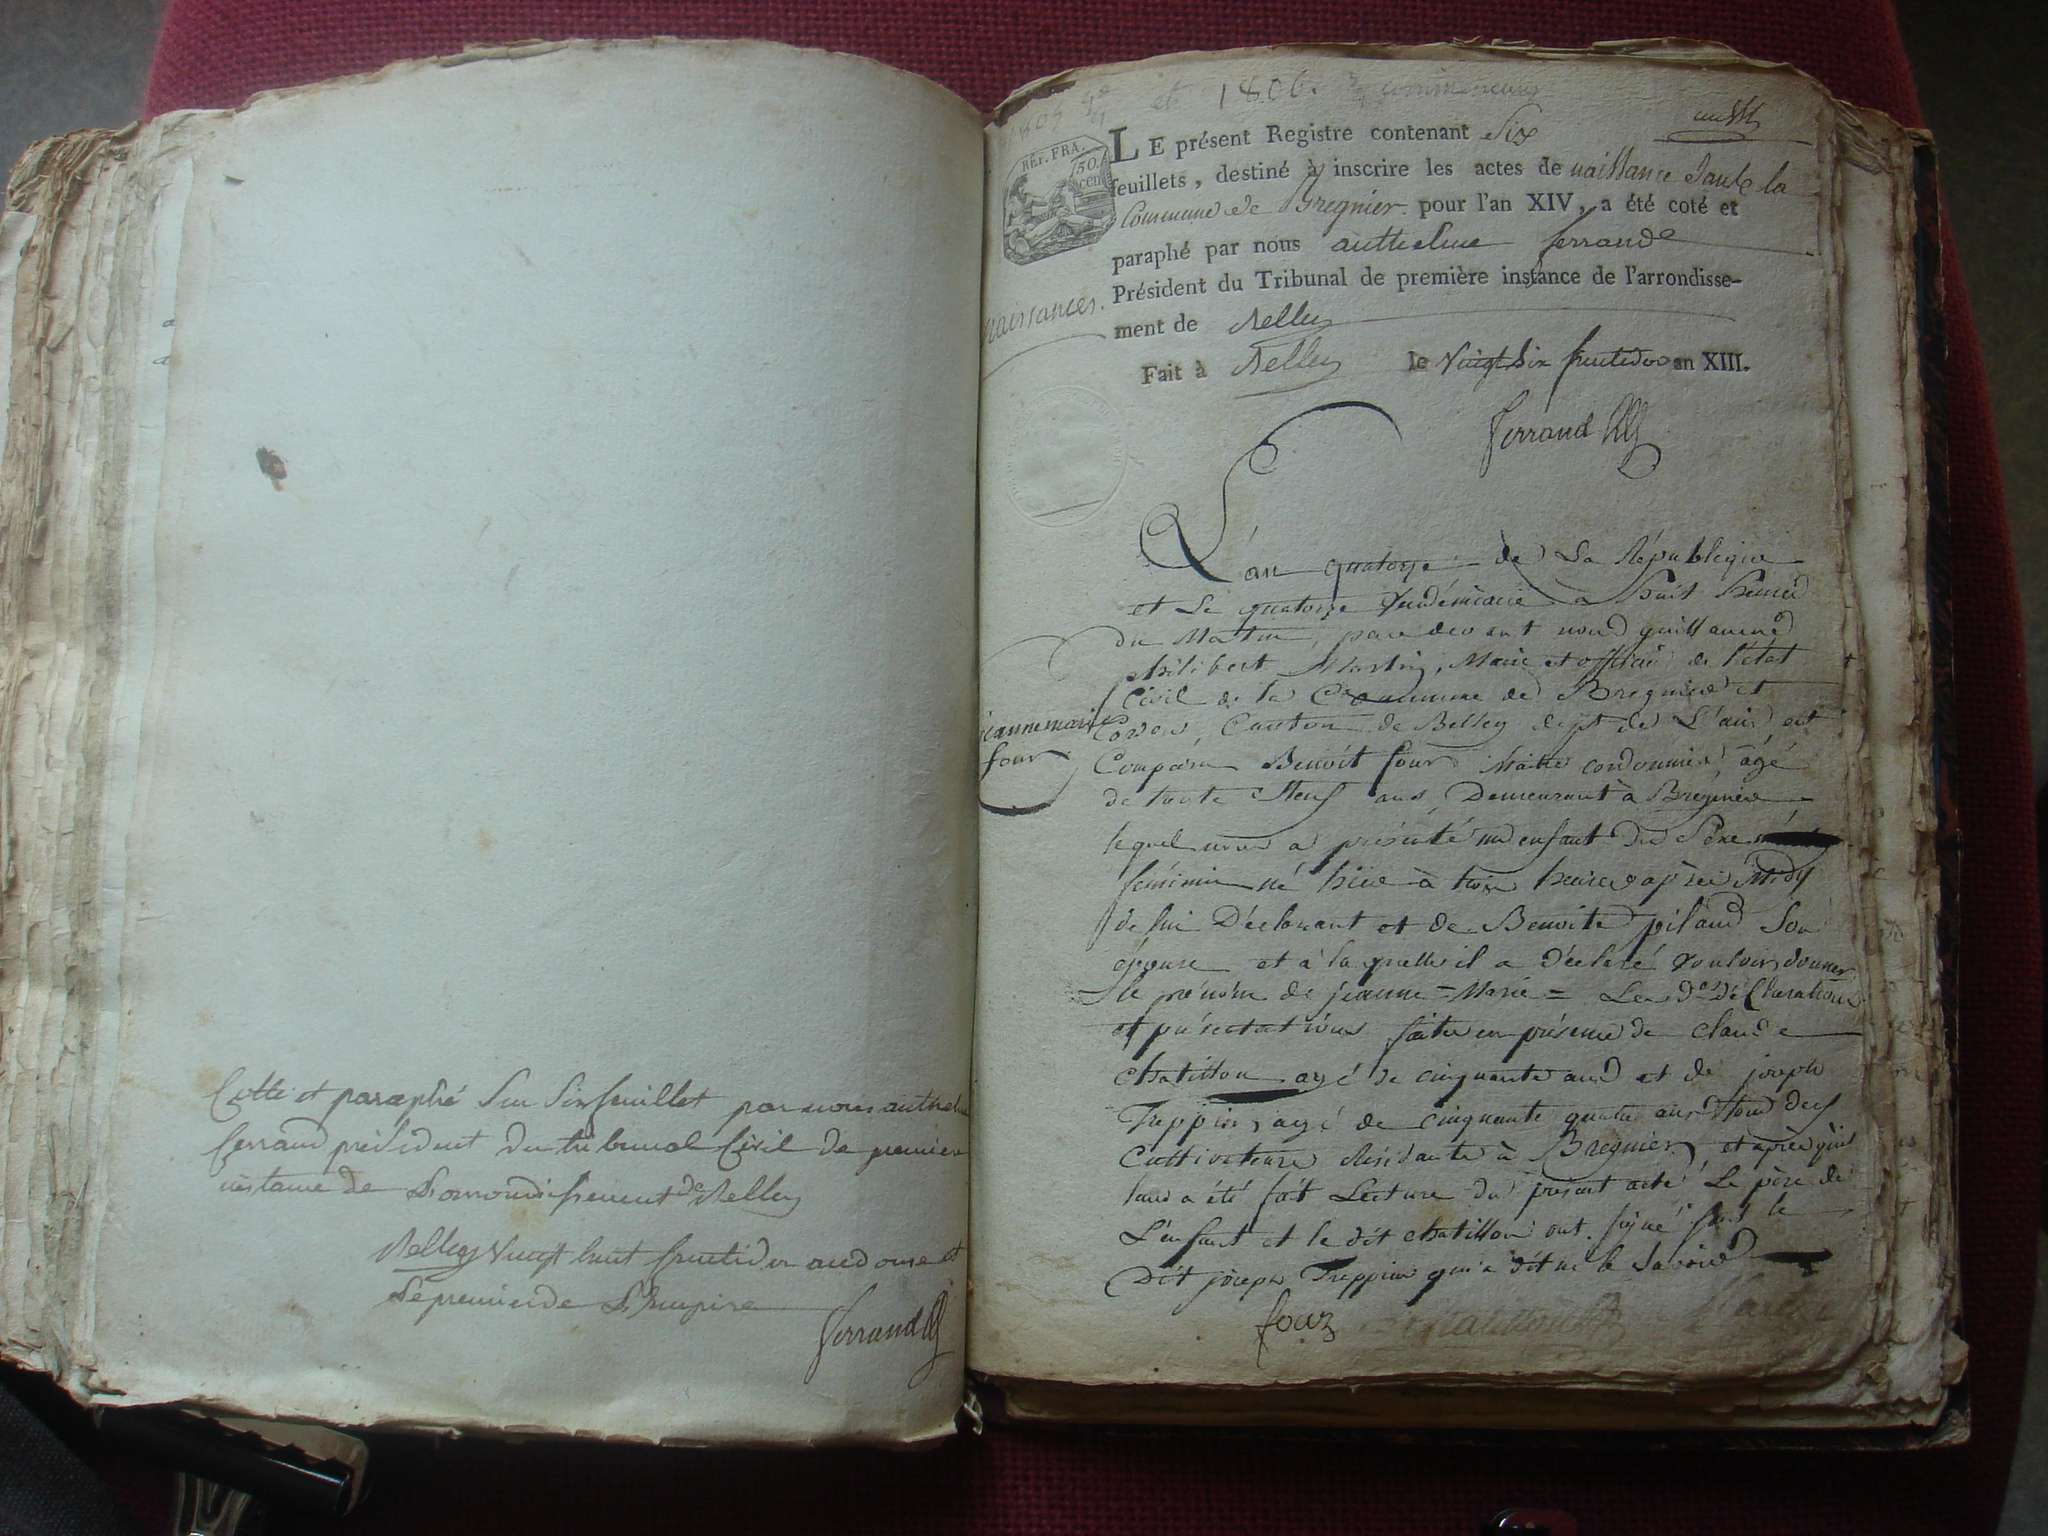 Cotté et paraphé Sur Six feuillet par nous anthelme
ferrand président du tribunal Civil de premiere
instance de L'arrondissement de Belley
Belley Vingt huit fructidor an douze et
Le premier de L'Empire
ferrand
et 1806.
RÉP. FRA.
50 cen
LE présent Registre contenant Six
feuillets, destiné à inscrire les actes de naissance dans la
Commune de Bregnier pour l'an XIV, a été coté et
paraphé par nous anthelme ferrand
Président du Tribunal de première instance de l'arrondisse-
ment de Belley
naissances.
Fait à Belley le Vingt Six fructidor an XIII.
ferrand
L'an quatorze de La République
et Le quatorze Vendémiaire a huit heures
du Matin, pardevant nous guillaume
philibert Martin, Maire et officier de l'état
Civil de la Commune de Bregnier et
Cordon, Canton de Belley dept de L'ain est
jeanne marie
four
Comparu Benoit four Maitre cordonnier âgé
de trente Neuf ans, Demeurant à Bregnier
lequel nous a présenté un enfant du Sexe
féminin né hier à trois heures après Midy
de lui Déclarant et de Benoite pilaud Son
épouse et à laquelle il a déclaré Vouloir donner
le prénom de jeanne = Marie = Les des déClarations
et présentations faites en présence de claude
chatillon agé de cinquante ans et de joseph
Treppier, agé de cinquante quatre ans tous deux
Cultivateurs Résidants à Bregnier, et après qu'il
leur a été fait Lecture du présent acte Le père de
L'enfant et le dit chatillon ont signé fort le
Dit joseph Treppier qui a dit ne le Savoir
four